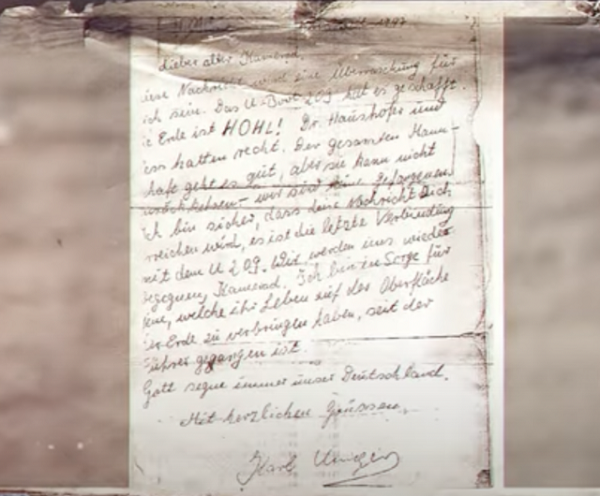 1947
lieber alter Kamerad,
Nachricht wird eine Überraschung für
ich sein. Das U-Boot 209 hat es geschafft.
e Erde ist HOHL! Dr. Haushofer und
ess hatten recht. Der gesamten Mann-
haft geht es gut, aber sie kann nicht
urückkehren - wir sind keine Gefangenen.
ch bin sicher, dass diese Nachricht Dich
rreichen wird, es ist die letzte Verbindung
mit dem U 209. Wir werden uns wieder
egegnen, Kamerad. Ich bin in Sorge für
ene, welche ihr Leben auf der Oberfläche
er Erde zu verbringen haben, seit der
ührer gegangen ist.
Gott segne immer unser Deutschland.
Mit herzlichen Grüssen,
Karl Unger